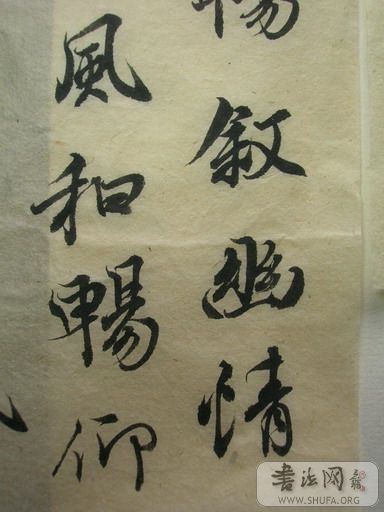 暢叙幽情
風和暢仰
書法网
WWW.SHUFA.ORG